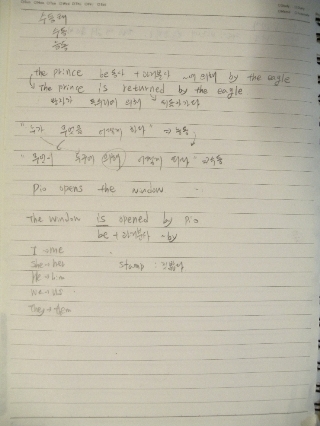 수동태
수동
능동
the prince be동사 + 과거분사 ~에 의해 by the eagle
The prince is returned by the eagle
"누가 무엇을 어떻게 하다" 능동
"무엇이 누구에 의해 어떻게 되다" 수동
Pio opens the window
The window is opened by Pio
be + 과거분사 ~by
I → me
She → her
He → him
We → us
They → them